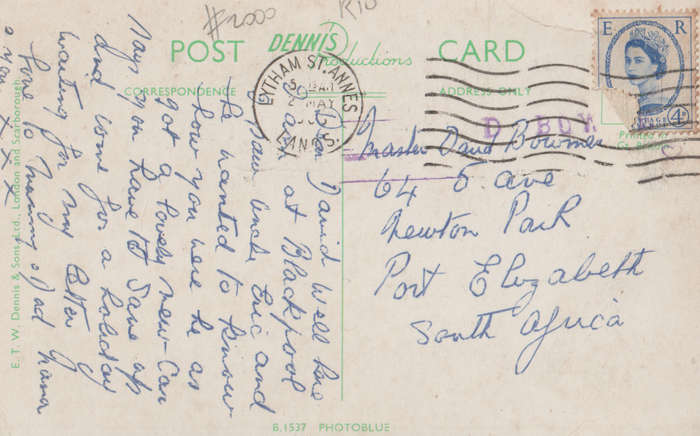 #2000
R10
POST CARD
DENNIS
Productions
CORRESPONDENCE
ADDRESS ONLY
E R
POSTAGE
4D
LYTHAM ST. ANNES
MAY
LANCS
Dear David Well here
I am at Blackpool
I saw uncle Eric and
he wanted to know
how you were he as
got a lovely new Car
says you have to save up
and come for a holiday
waiting for my letter
Love to Mammy & Dad Nana
x x x
Master David Bowmer
64 5 ave
Newton Park
Port Elizabeth
South Africa
E. T. W. Dennis & Sons Ltd., London and Scarborough
B.1537 PHOTOBLUE